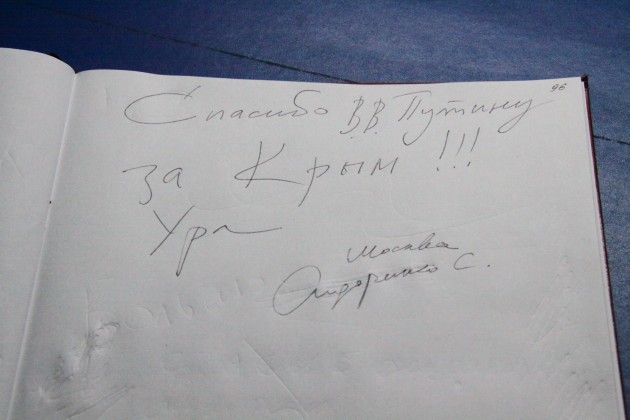 96
Спасибо В.В. Путину
за Крым !!!
Ура
Москва
С.